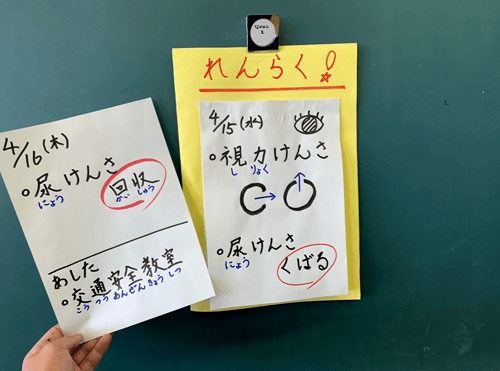 れんらく!
4/15(水)
○視力けんさ
しりょく
○尿けんさ
にょう
くばる
4/16(木)
○尿けんさ
にょう
回収
かいしゅう
あした
○交通安全教室
こうつうあんぜんきょうしつ